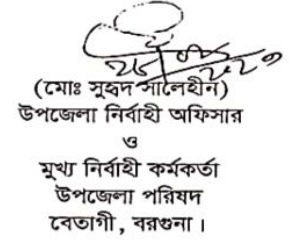 (মোঃ সুহৃদ সালেহীন)
উপজেলা নির্বাহী অফিসার
ও
মুখ্য নির্বাহী কর্মকর্তা
উপজেলা পরিষদ
বেতাগী, বরগুনা।